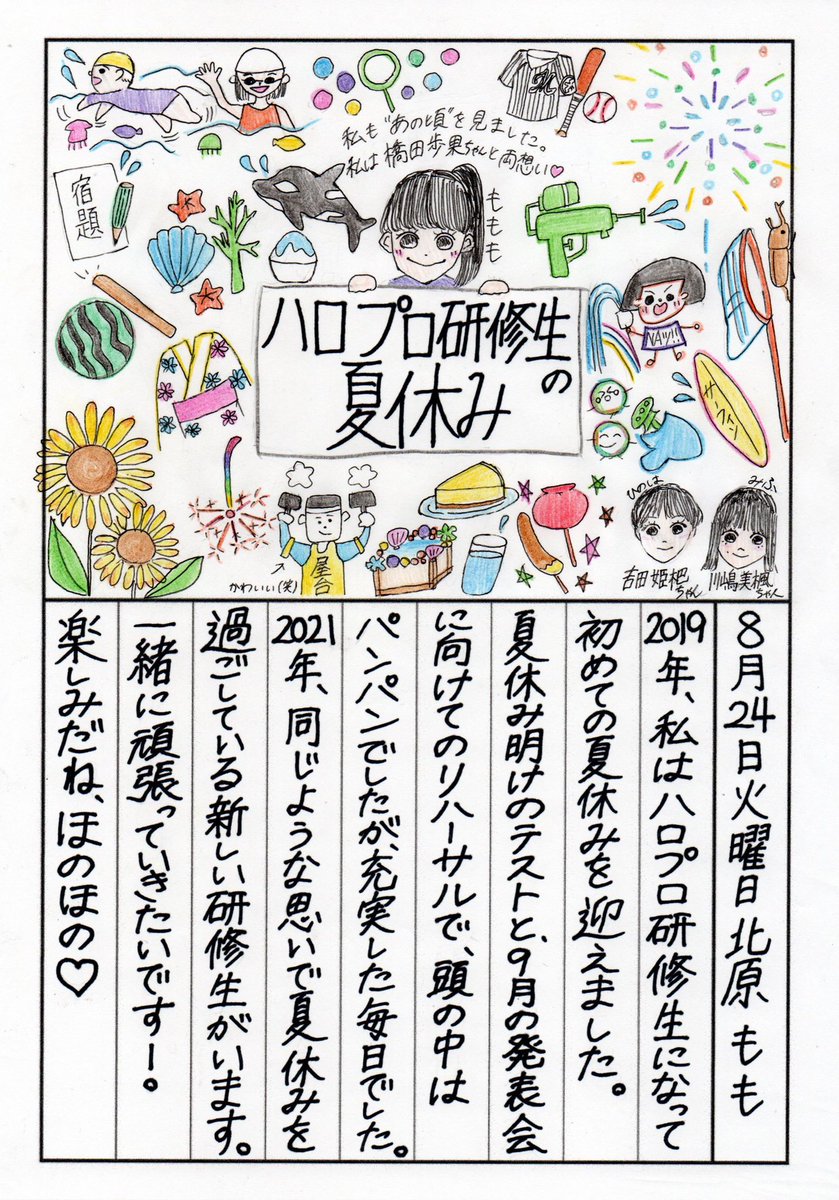 私も"あの頃"を見ました。
私は橋田歩果ちゃんと両想い♡
宿題
もももも
ハロプロ研修生
の
夏休み
NAツ!!
サンクトン
屋台
かわいい(笑)
ひのは
吉田姫杷ちゃん
みふ
川嶋美楓ちゃん
8月24日火曜日 北原もも
2019年、私はハロプロ研修生になって
初めての夏休みを迎えました。
夏休み明けのテストと、9月の発表会
に向けてのリハーサルで、頭の中は
パンパンでしたが、充実した毎日でした。
2021年、同じような思いで夏休みを
過ごしている新しい研修生がいます。
一緒に頑張っていきたいですー。
楽しみだね、ほのほの♡